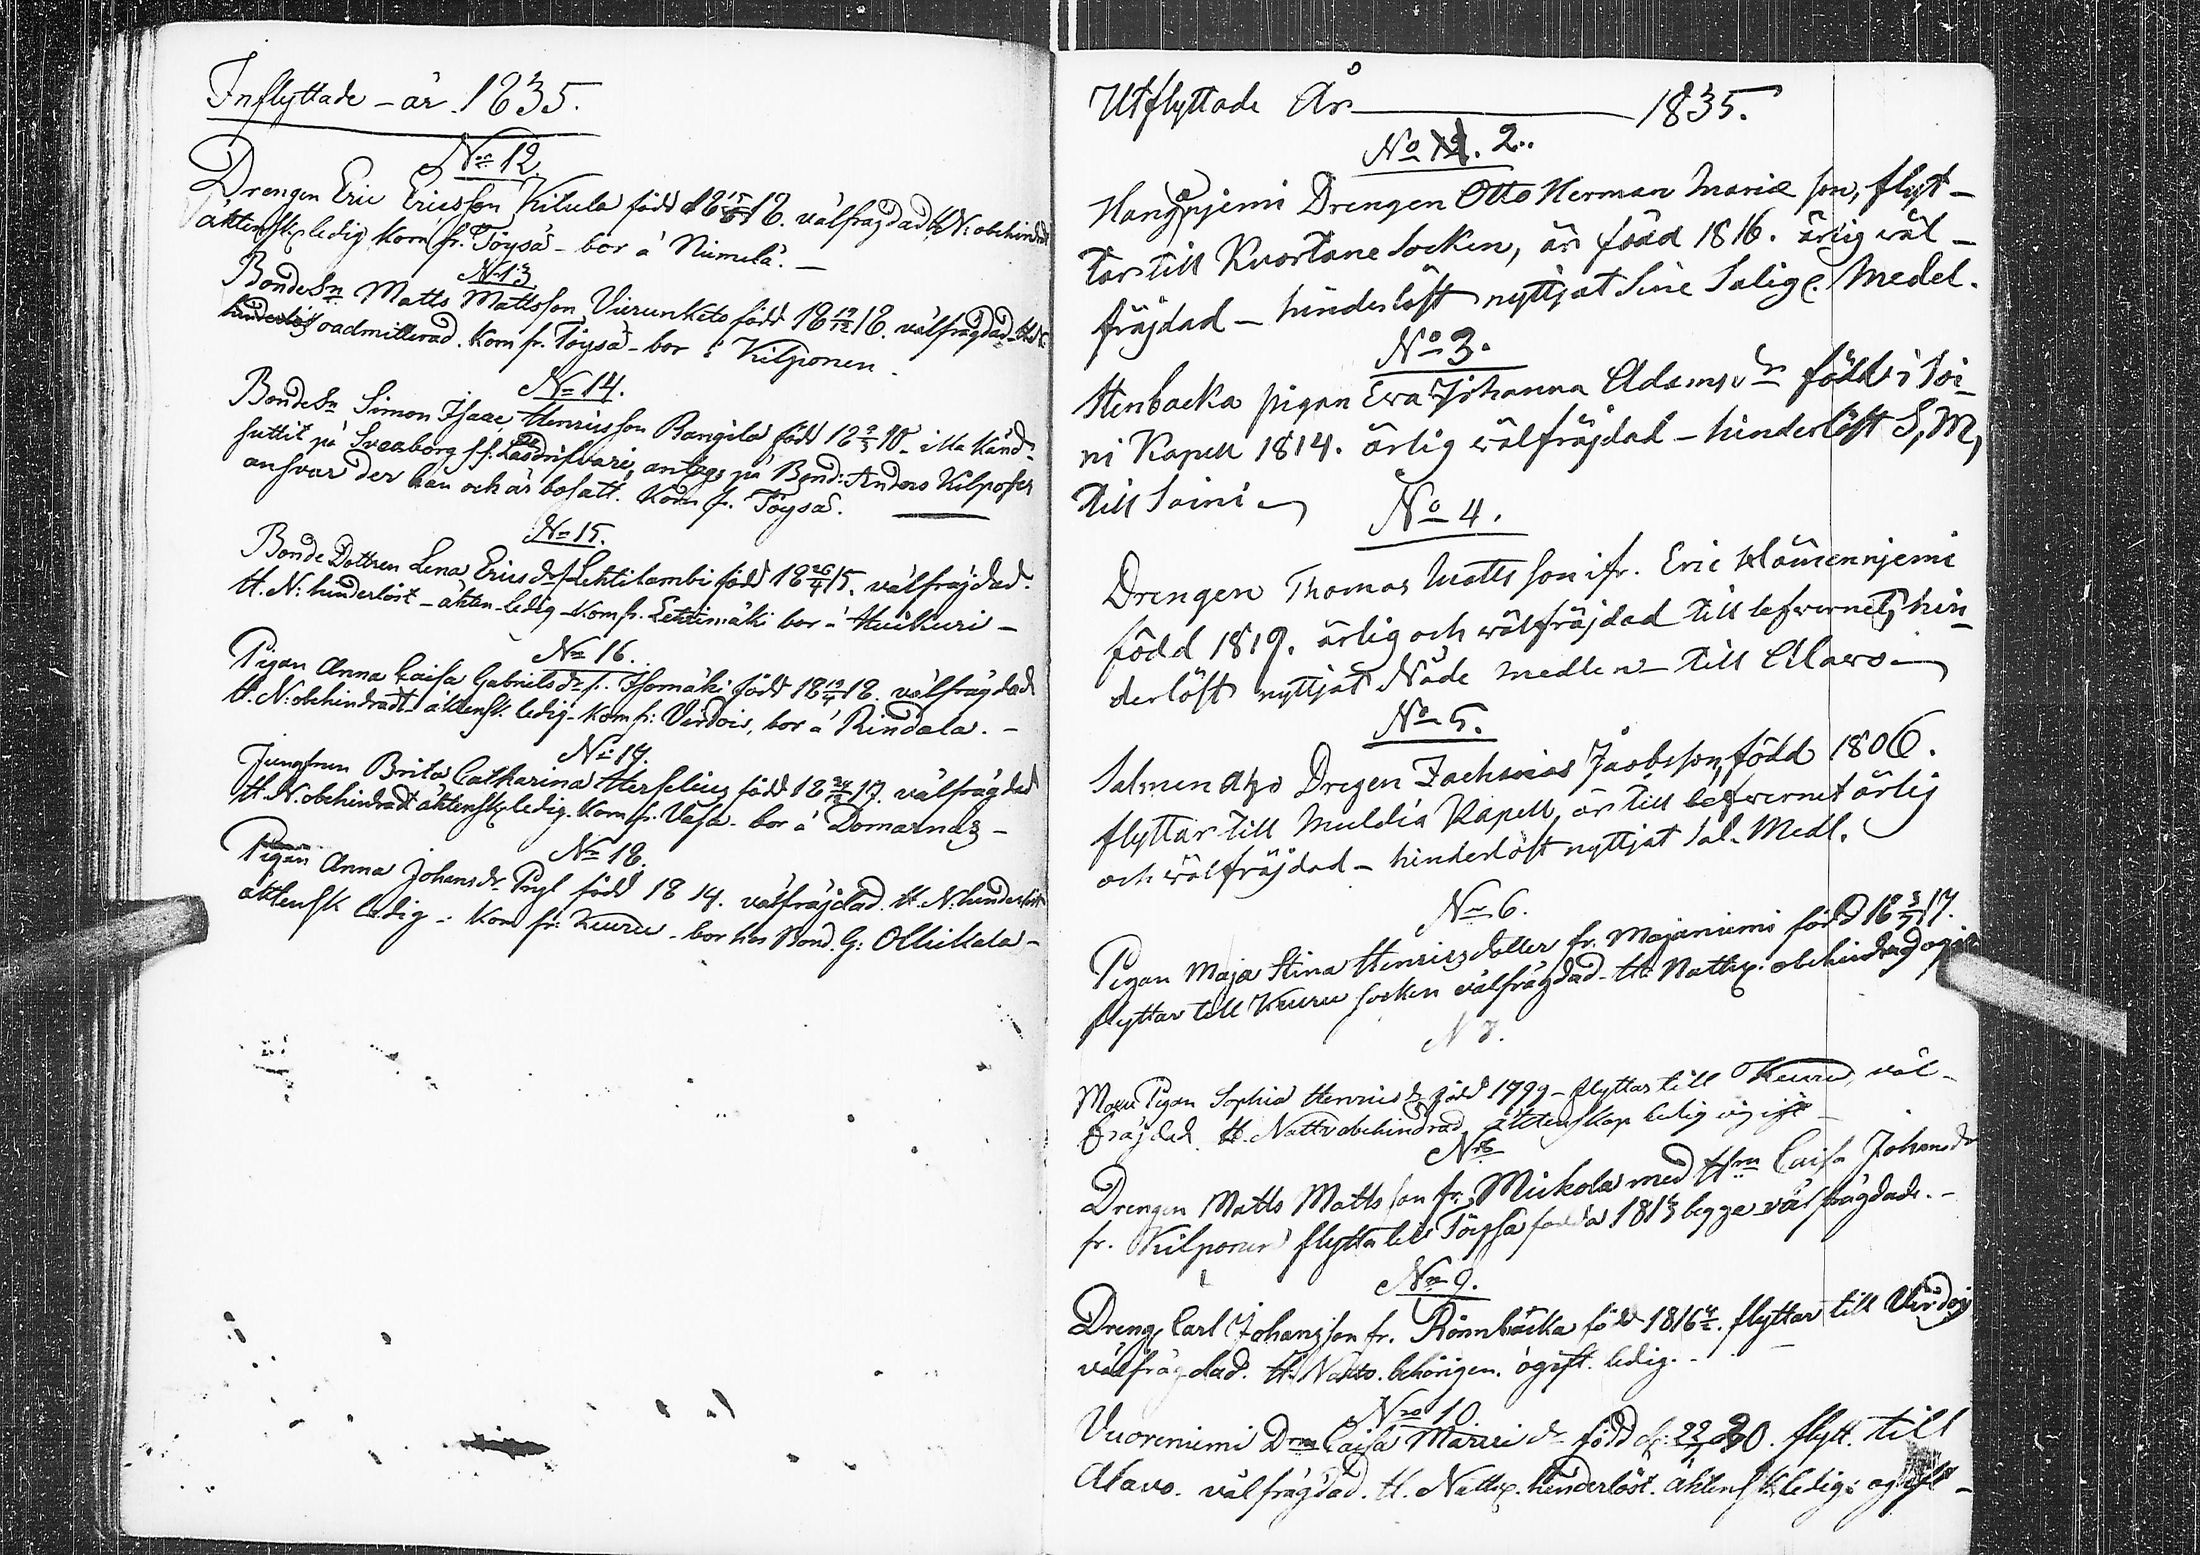 Inflyttade - år 1835.
No 12.
Drengen Eric Ericsson Kitula född 18 15/6 18. välfrägdad H. N: obehindradt
äktenskp ledig kom fr. Töysä - bor å Niemelä. -
N 13
Bondesn Matts Mattsson Vierunketo född 18 19/12 18. välfrägdad H. N.
hinderlöst oadmitterad. Kom fr. Töysä - bor å Kilponen.
No 14.
Bondesn Simon Isaac Henricsson Rangila född 18 2/3 10 - illa känd -
suttit på Sveaborg antags på Bond: Anders Kilponen
ansvar der han och är bosatt. Kom fr. Töysä.
No 15.
Bonde Dottren Lena Ericsdr Lehtilambi född 18 26/4 15. välfrägdad.
H. N: hinderlöst - äkten. ledig - Kom fr. Lehtimäki bor å Huikuri -
No 16.
Pigan Anna Caisa Gabrielsdr fr. Isomäki född 18 19/4 18. välfrägdad
H. N: obehindradt - äktensk. ledig - Kom fr: Virdois, bor å Rindala. -
No 17.
Jungfrun Brita Catharina Herselius född 18 24/12 17. välfrägdad
H. N. obehindradt äktenskp ledig. Kom fr. Vasa - bor å Domarnäs -
No 18.
Pigan Anna Johansdr född 18 14. välfräjdad. H. N. hinderlöst
äktensk ledig - Kom fr: Keuru - bor hos Bond. G: Ollikala -
Utflyttade År 1835.
No 2..
Drengen Otto Herman Mariæ son, flyt-
tar till Kuortane Socken, är född 1816. ärlig wäl -
fräjdad - hinderlöst nyttjat Sine Salige Medel.
No 3.
Stenbacka pigan Eva Johanna Adamsdr född i Soi-
ni Kapell 1814. ärlig wälfräjdad - hinderlöst S, M,
till Soini -
No 4.
Drengen Thomas Mattsson ifr. Eric Hämenniemi
född 1819. ärlig och wälfräjdad till lefwernet, hin-
derlöst nyttjat Nåde medlen - till Alawo -
No 5.
Salmen Drengen Zachrias Jacobsson, född 1806.
flyttar till Muldia Kapell, är till lefwernet ärlig
och wälfräjdad - hinderlöst nyttjat Sal. Medl.
No 6.
Pigan Maja Stina Henricsdotter fr. Majaniemi född 18 3/7 17.
flyttar till Keuru socken välfrägdad - H. Nattv. obehindrad ogift
N 7.
Pigan Sophia Henricsdr född 1799 - flyttar till Keuru, väl -
frägdad H. Nattv obehindrad äktenskap ledig ogift -
N 8
Drengen Matts Mattsson fr. Mickola med Hru Caisa Johansdr
fr. Kilponen flytta till Töysä födda 1813 begge välfrägdade. -
No 9.
Dreng Carl Johansson fr. Rönnbacka född 1816. flyttar till Virdois
välfrägdad. H. Nattv. behörigen. ogift. ledig. -
No 10.
Vuoreniemi Caisa dr född d: 22/7 20. flytt. till
Alavo. välfrägdad. H. Nattv. hinderlöst. äktensk ledig: ogift -